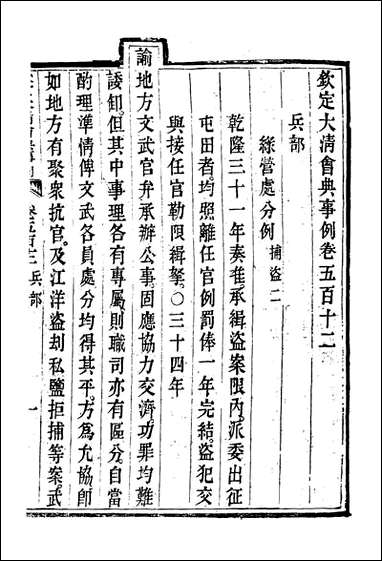 欽定大清會典事例卷五百十二
兵部
綠營處分例 捕盜二
乾隆三十一年奏准承緝盜案限內派委出征
屯田者均照離任官例罰俸一年完結盜犯交
與接任官勒限緝拏○三十四年
諭地方文武官弁承辦公事固應協力交濟功罪均難
諉卸但其中事理各有專屬則職司亦有區分自當
酌理準情俾文武各員處分均得其平方為允協卽
如地方有聚衆抗官及江洋盜刦私鹽拒捕等案武
卷五百十二 兵部 一